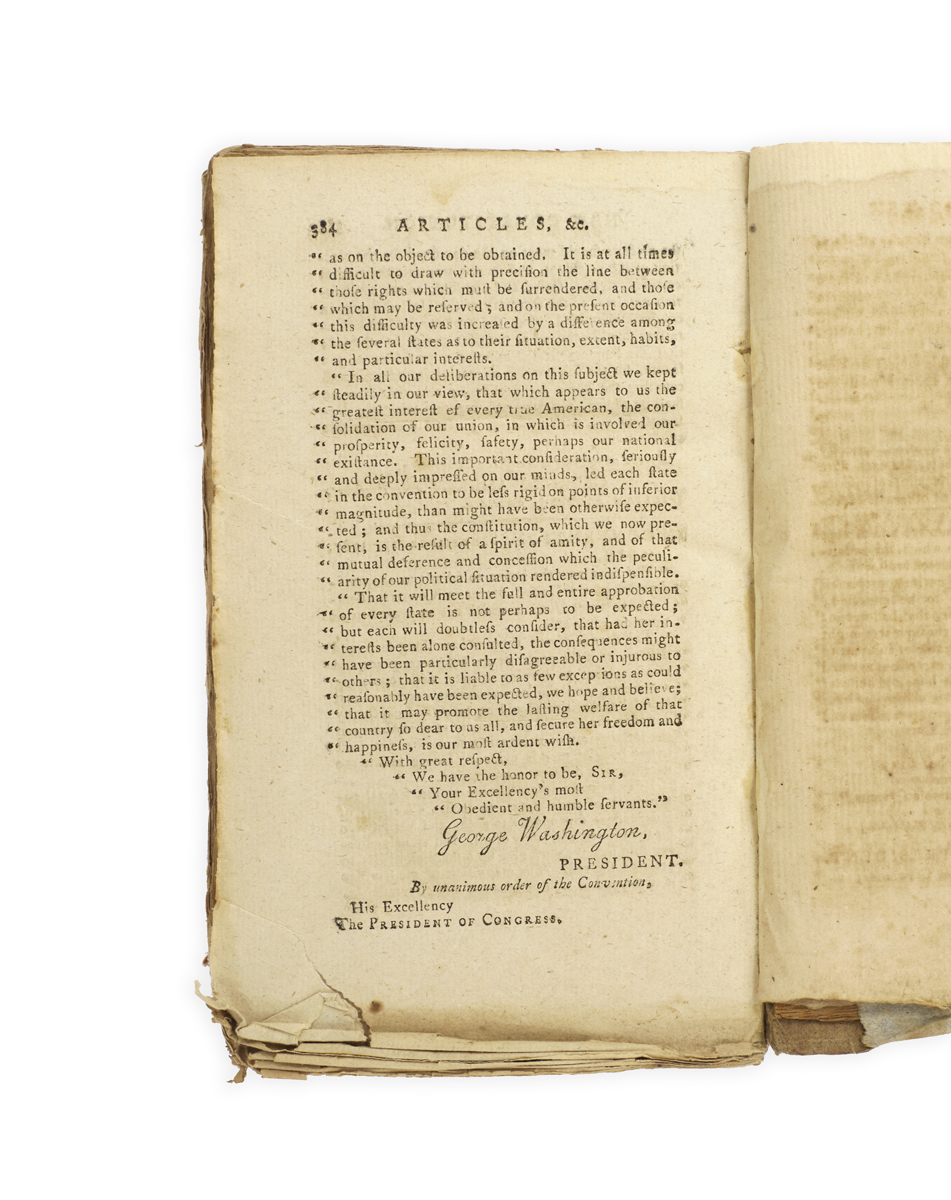 384 ARTICLES, &c.
“ as on the object to be obtained. It is at all times
“ difficult to draw with preciſion the line between
“ thoſe rights which muſt be ſurrendered, and thoſe
“ which may be reſerved ; and on the preſent occaſion
“ this difficulty was increaſed by a difference among
“ the ſeveral ſtates as to their ſituation, extent, habits,
“ and particular intereſts.
“ In all our deliberations on this ſubject we kept
“ ſteadily in our view, that which appears to us the
“ greateſt intereſt ef every true American, the con-
“ ſolidation of our union, in which is involved our
“ proſperity, felicity, ſafety, perhaps our national
“ exiſtance. This important conſideration, ſeriouſly
“ and deeply impreſſed on our minds, led each ſtate
“ in the convention to be leſs rigid on points of inferior
“ magnitude, than might have been otherwiſe expec-
“ ted ; and thus the conſtitution, which we now pre-
“ ſent, is the reſult of a ſpirit of amity, and of that
“ mutual deference and conceſſion which the peculi-
“ arity of our political ſituation rendered indiſpenſible.
“ That it will meet the full and entire approbation
“ of every ſtate is not perhaps to be expected ;
“ but each will doubtleſs conſider, that had her in-
“ tereſts been alone conſulted, the conſequences might
“ have been particularly diſagreeable or injurous to
“ others ; that it is liable to as few exceptions as could
“ reaſonably have been expected, we hope and believe;
“ that it may promote the laſting welfare of that
“ country ſo dear to us all, and ſecure her freedom and
“ happineſs, is our moſt ardent wiſh.
“ With great reſpect,
“ We have the honor to be, SIR,
“ Your Excellency's moſt
“ Obedient and humble ſervants.”
George Washington,
PRESIDENT.
By unanimous order of the Convention,
His Excellency
The PRESIDENT OF CONGRESS.